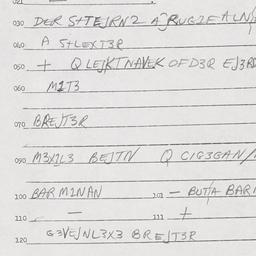 030 DER S+TEJRN2 A RUG2FALN
040 A S+LEXT3R
050 + Q LEJKTNAVEK OFD3R EJ3RD
060 M2T3
070 BREJT3R
090 M3X2L3 BEJTN Q C1G3GAN/
100 BARM2NAN 101 — BUTTA BAR
110 — 111 +
120 G3VEJNL3X3 BREJT3R